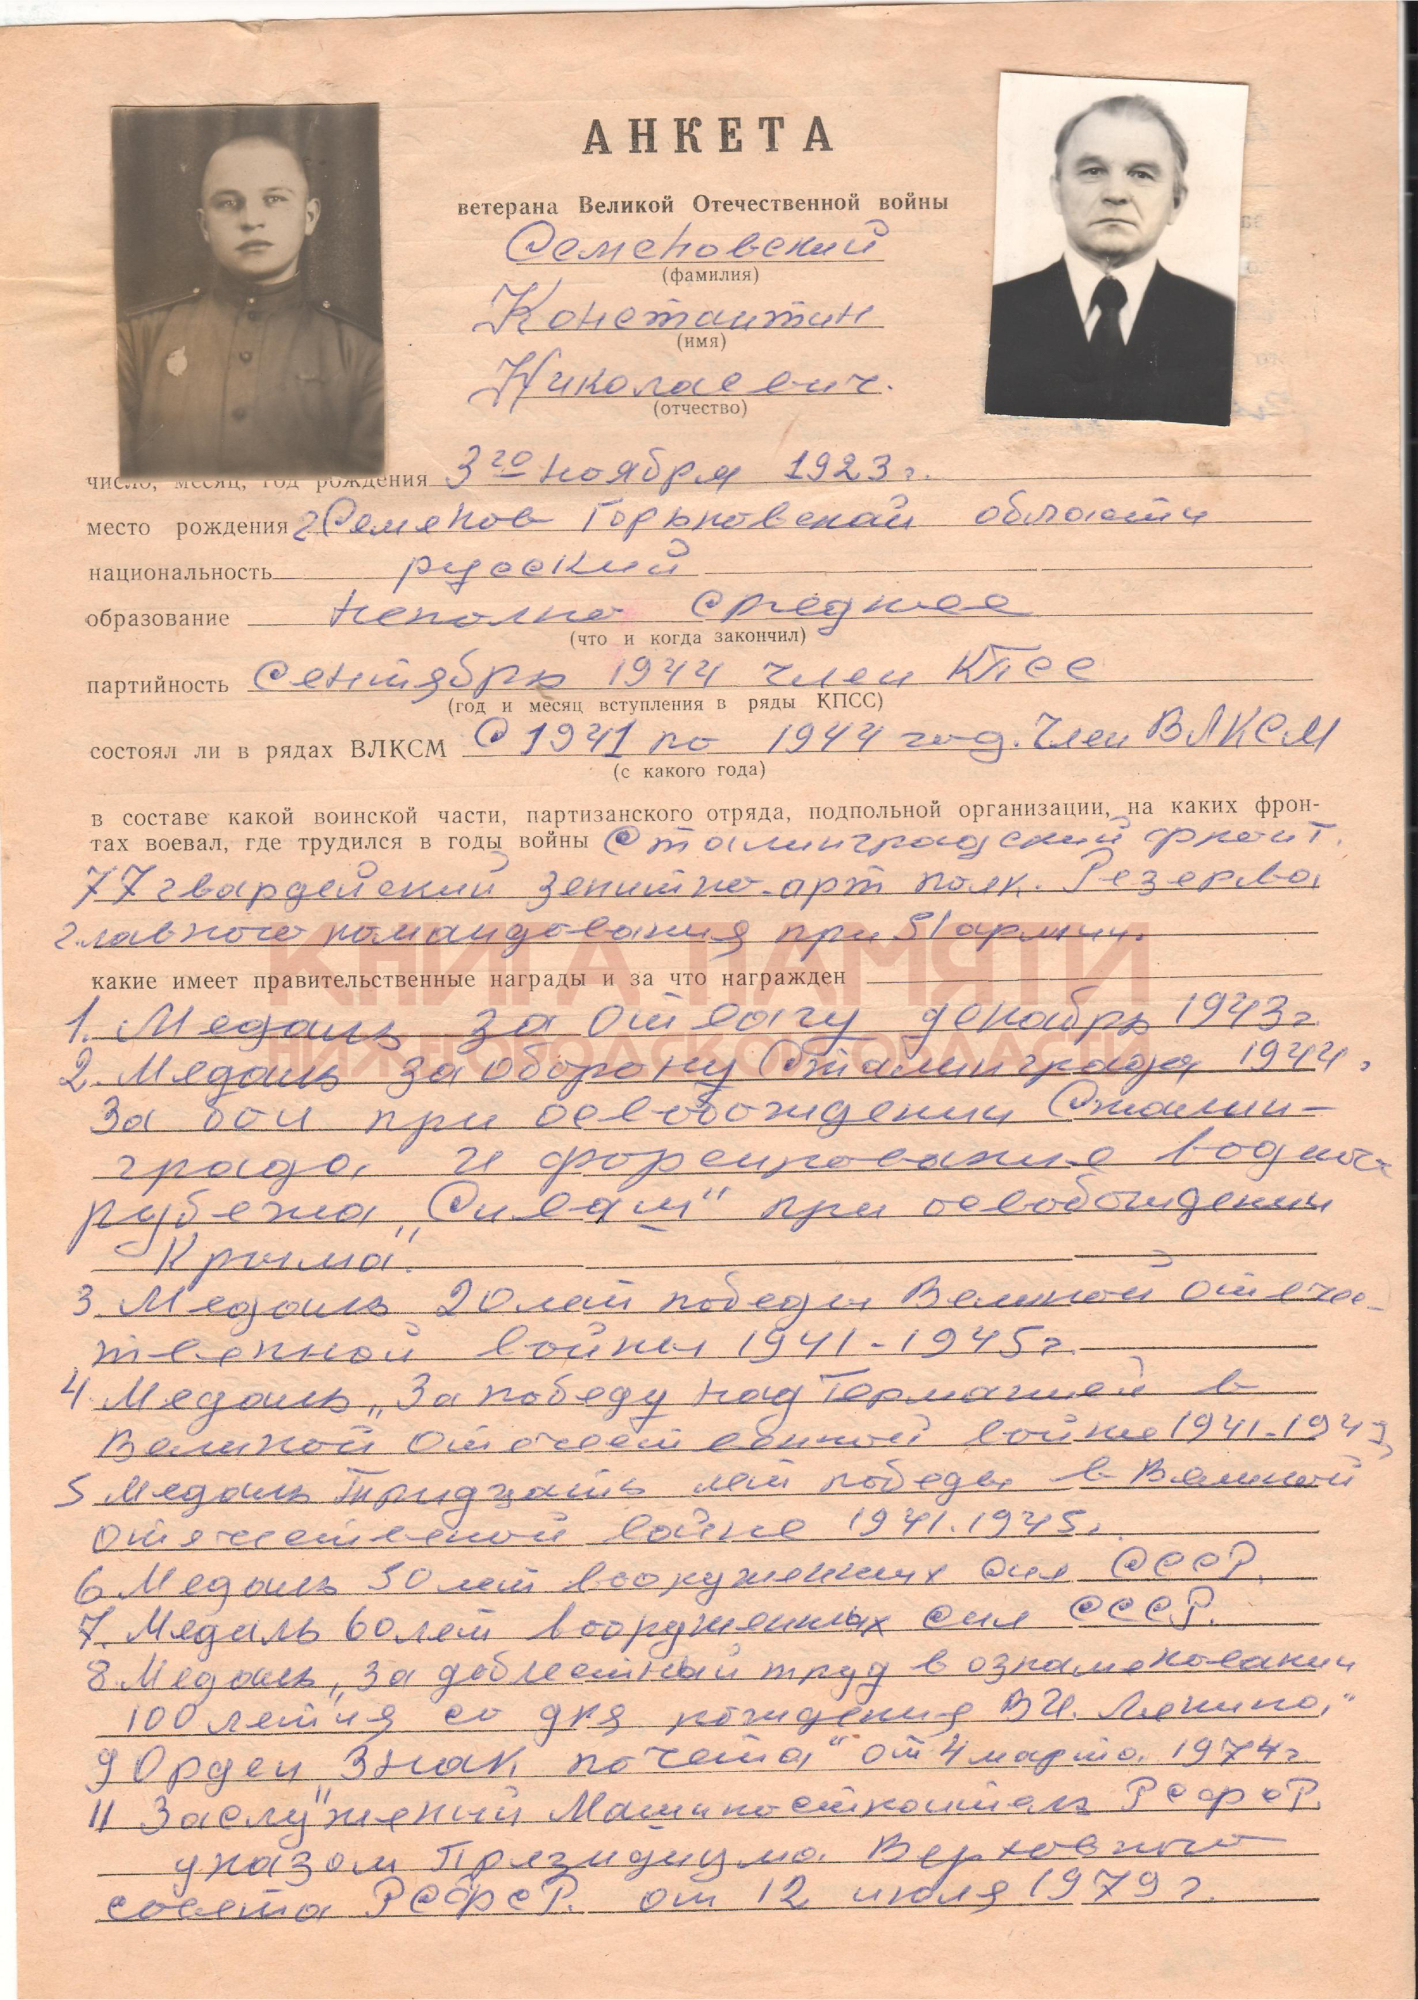 АНКЕТА
ветерана Великой Отечественной войны
Семеновский
(фамилия)
Константин
(имя)
Николаевич.
(отчество)
число, месяц, год рождения 3го ноября 1923 г.
место рождения г Семенов Горьковской области
национальность русский
образование неполно среднее
(что и когда закончил)
партийность Сентябрь 1944 член КПСС
(год и месяц вступления в ряды КПСС)
состоял ли в рядах ВЛКСМ С 1941 по 1944 год. Член ВЛКСМ
(с какого года)
в составе какой воинской части, партизанского отряда, подпольной организации, на каких фрон-
тах воевал, где трудился в годы войны Сталинградский фронт.
77 гвардейский зенитно-арт полк. Резерва
главного командования при 51 армии.
КНИГА ПАМЯТИ
какие имеет правительственные награды и за что награжден
1. Медаль за отвагу декабрь 1943 г
НИЖЕГОРОДСКОЙ ОБЛАСТИ
2. Медаль за оборону Сталинграда 1944.
За бои при освобождении Сталин-
града и форсирование водного
рубежа „Сиваш" при освобождении
Крыма".
3. Медаль 20 лет победы Великой Отече-
твенной войны 1941-1945 г.
4. Медаль „За победу над Германией в
Великой Отечественной войне 1941-1945
5 Медаль Тридцать лет победы в Великой
Отечественой войне 1941.1945г.
6 Медаль 50 лет вооруженных сил СССР.
7. Медаль 60 лет вооруженных сил СССР.
8. Медаль „За доблестный труд в ознаменовании
100 летия со дня рождения В.И. Ленина"
9 Орден „Знак почета" от 4 марта 1974 г
11 Заслуженый Машиностроитель РСФСР.
указом Президиума Верховного
совета РСФСР. от 12 июля 1979 г.